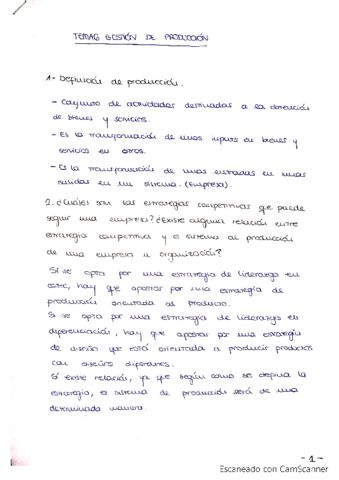 TEMA6 GESTIÓN DE PRODUCCIÓN
1.- Definición de producción.
- Conjunto de actividades destinadas a la obtención
de bienes y servicios.
- Es la transformación de unos inputs en bienes y
servicios en otros.
- Es la transformación de unas entradas en unas
salidas en un sistema. (empresa).
2. ¿Cuáles son las estrategias competitivas que puede
seguir una empresa? ¿Existe alguna relación entre
estrategia competitiva y el sistema de producción
de una empresa u organización?
Si se opta por una estrategia de liderazgo en
coste, hay que apostar por una estrategia de
producción orientada al producto.
Si se opta por una estrategia de liderazgo en
diferenciación, hay que apostar por una estrategia
de diseño que está orientada a producir productos
con diseños diferentes.
Sí existe relación, ya que según como se defina la
estrategia, el sistema de producción será de una
determinada manera.
- 1 -
Escaneado con CamScanner